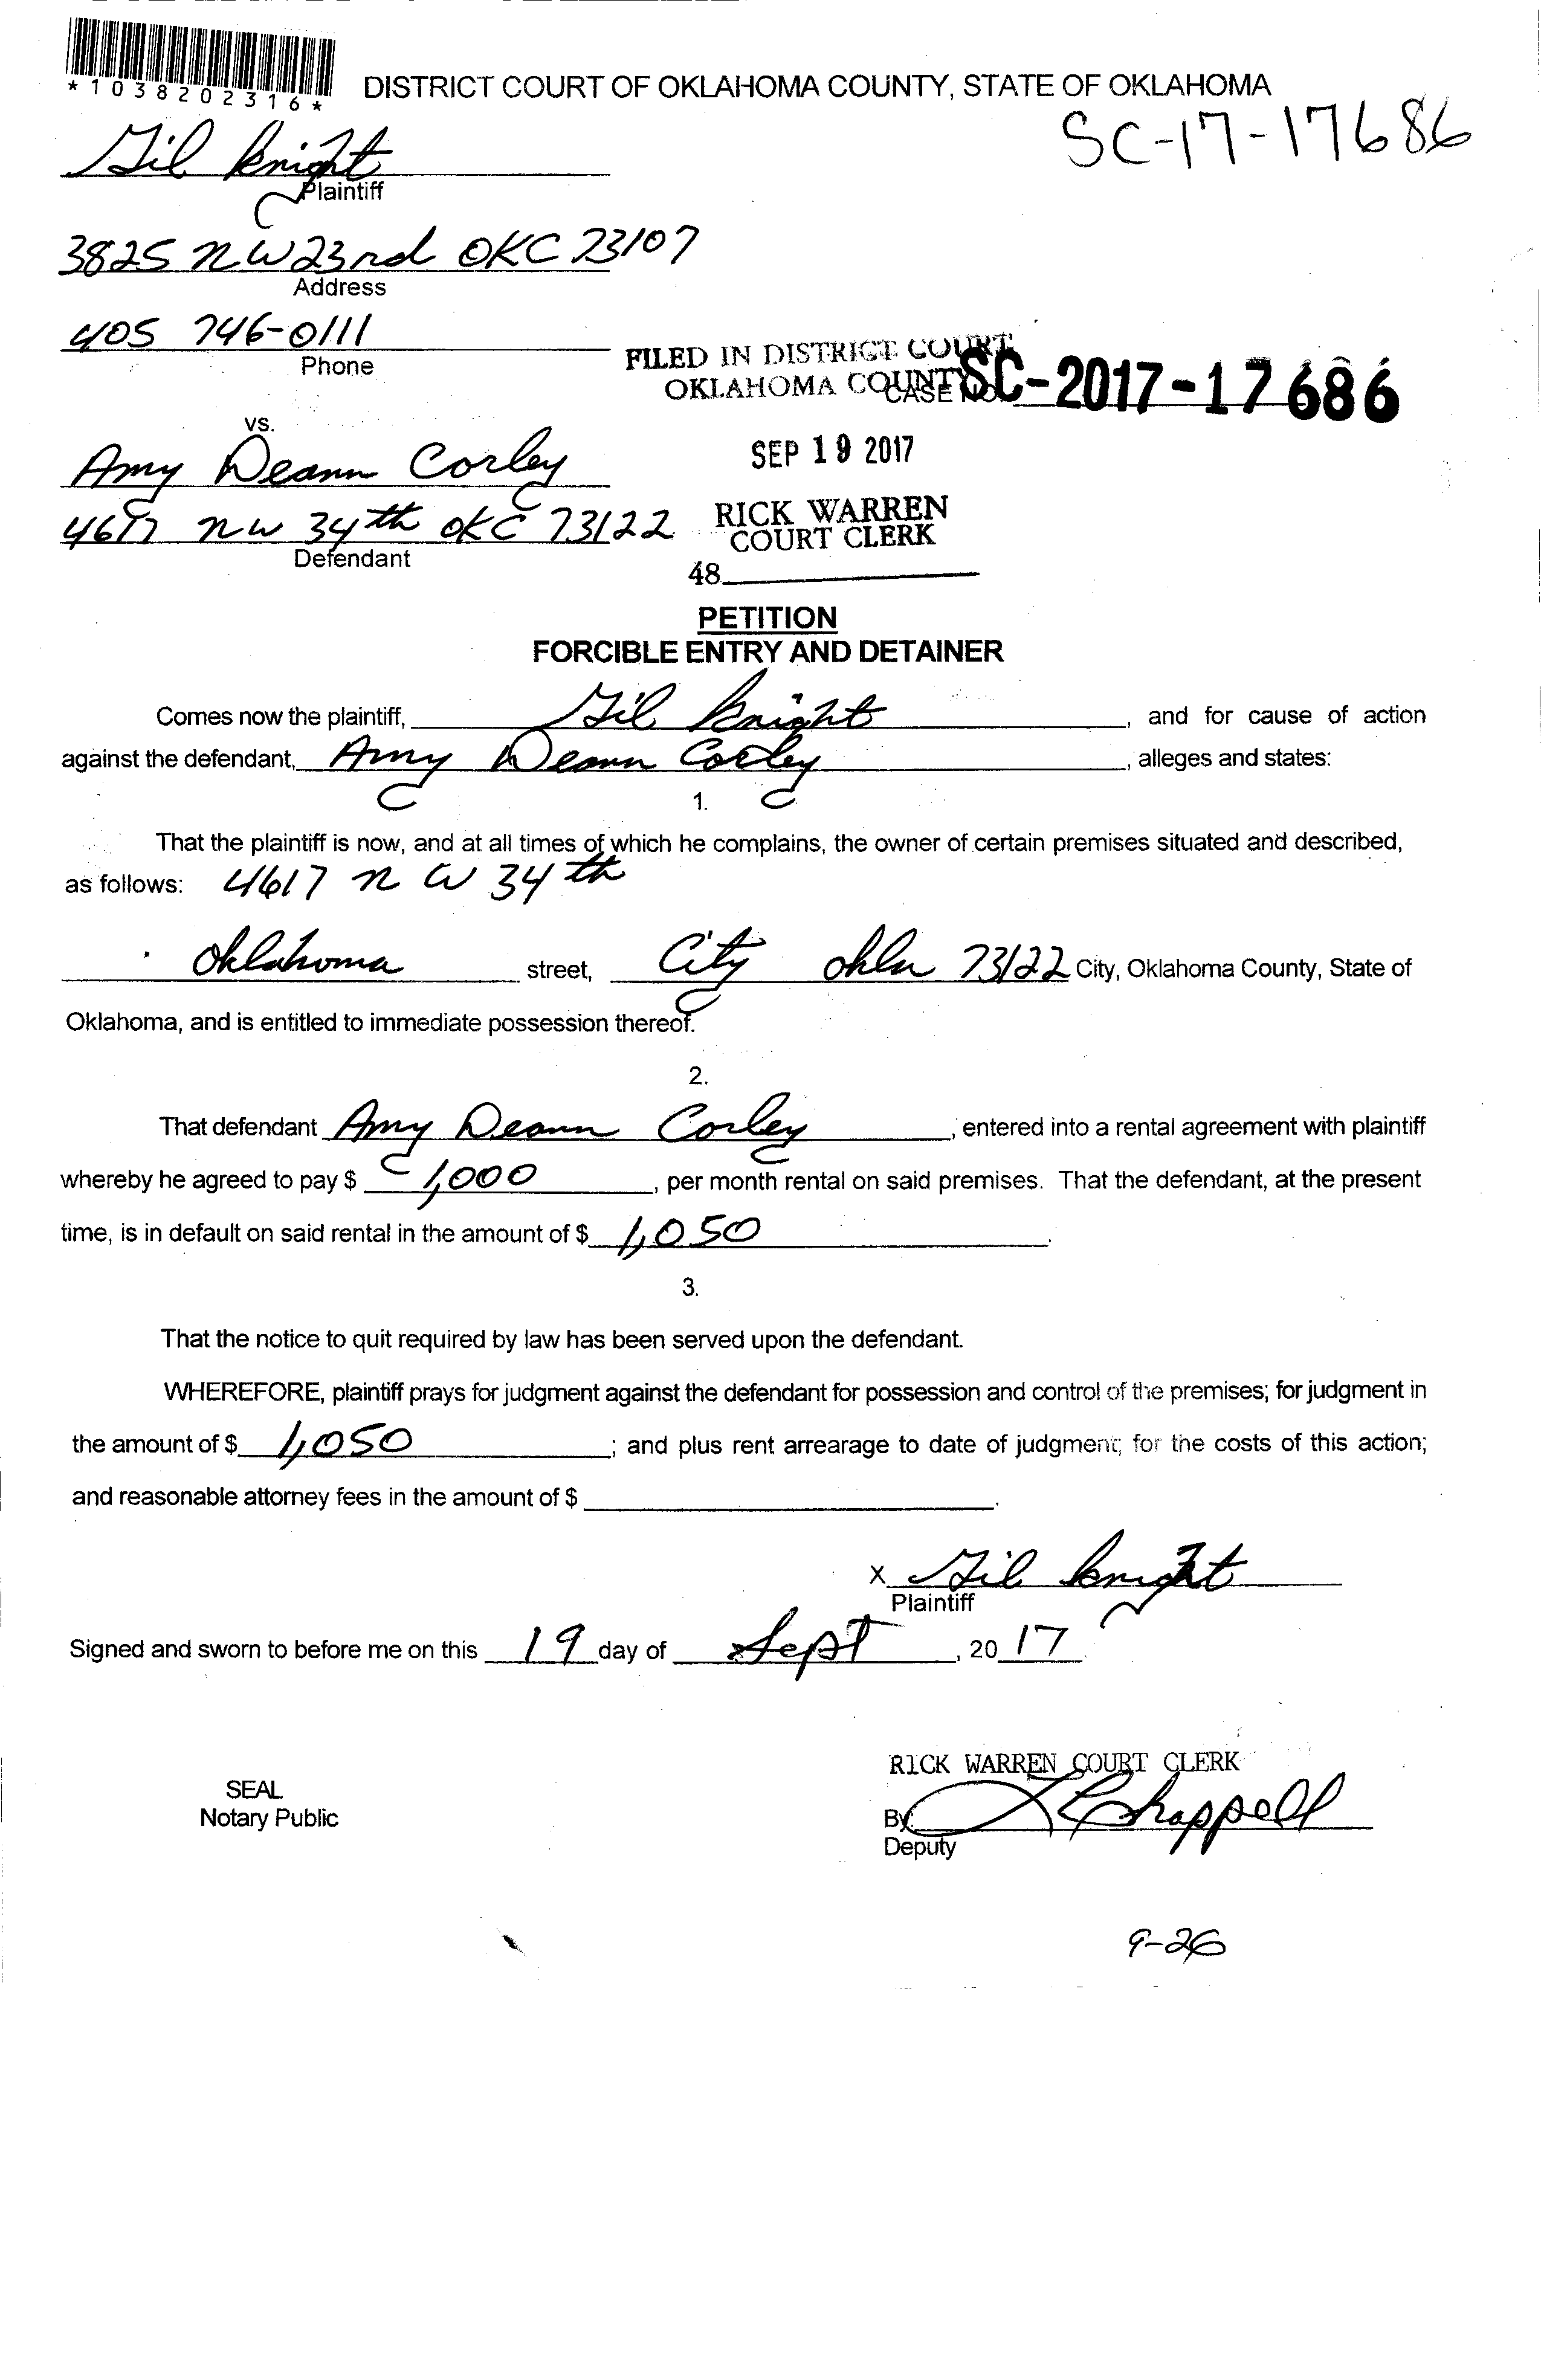 *1038202316*
DISTRICT COURT OF OKLAHOMA COUNTY, STATE OF OKLAHOMA
SC-17-17686
Gil Knight
Plaintiff
3825 NW 23rd OKC 73107
Address
405 746-0111
Phone
FILED IN DISTRICT COURT
OKLAHOMA COUNTY
CASE NO. SC-2017-17686
vs.
SEP 19 2017
Amy Deann Corley
4617 NW 34th OKC 73122
Defendant
RICK WARREN
COURT CLERK
48
PETITION
FORCIBLE ENTRY AND DETAINER
Comes now the plaintiff, Gil Knight, and for cause of action
against the defendant, Amy Deann Corley, alleges and states:
1.
That the plaintiff is now, and at all times of which he complains, the owner of certain premises situated and described,
as follows: 4617 NW 34th
Oklahoma street, City Okla 73122 City, Oklahoma County, State of
Oklahoma, and is entitled to immediate possession thereof.
2.
That defendant Amy Deann Corley, entered into a rental agreement with plaintiff
whereby he agreed to pay $ 1,000, per month rental on said premises. That the defendant, at the present
time, is in default on said rental in the amount of $ 1,050.
3.
That the notice to quit required by law has been served upon the defendant.
WHEREFORE, plaintiff prays for judgment against the defendant for possession and control of the premises; for judgment in
the amount of $ 1,050; and plus rent arrearage to date of judgment; for the costs of this action;
and reasonable attorney fees in the amount of $
X Gil Knight
Plaintiff
Signed and sworn to before me on this 19 day of Sept, 2017
RICK WARREN COURT CLERK
SEAL
Notary Public
By: Chappell
Deputy
9-26